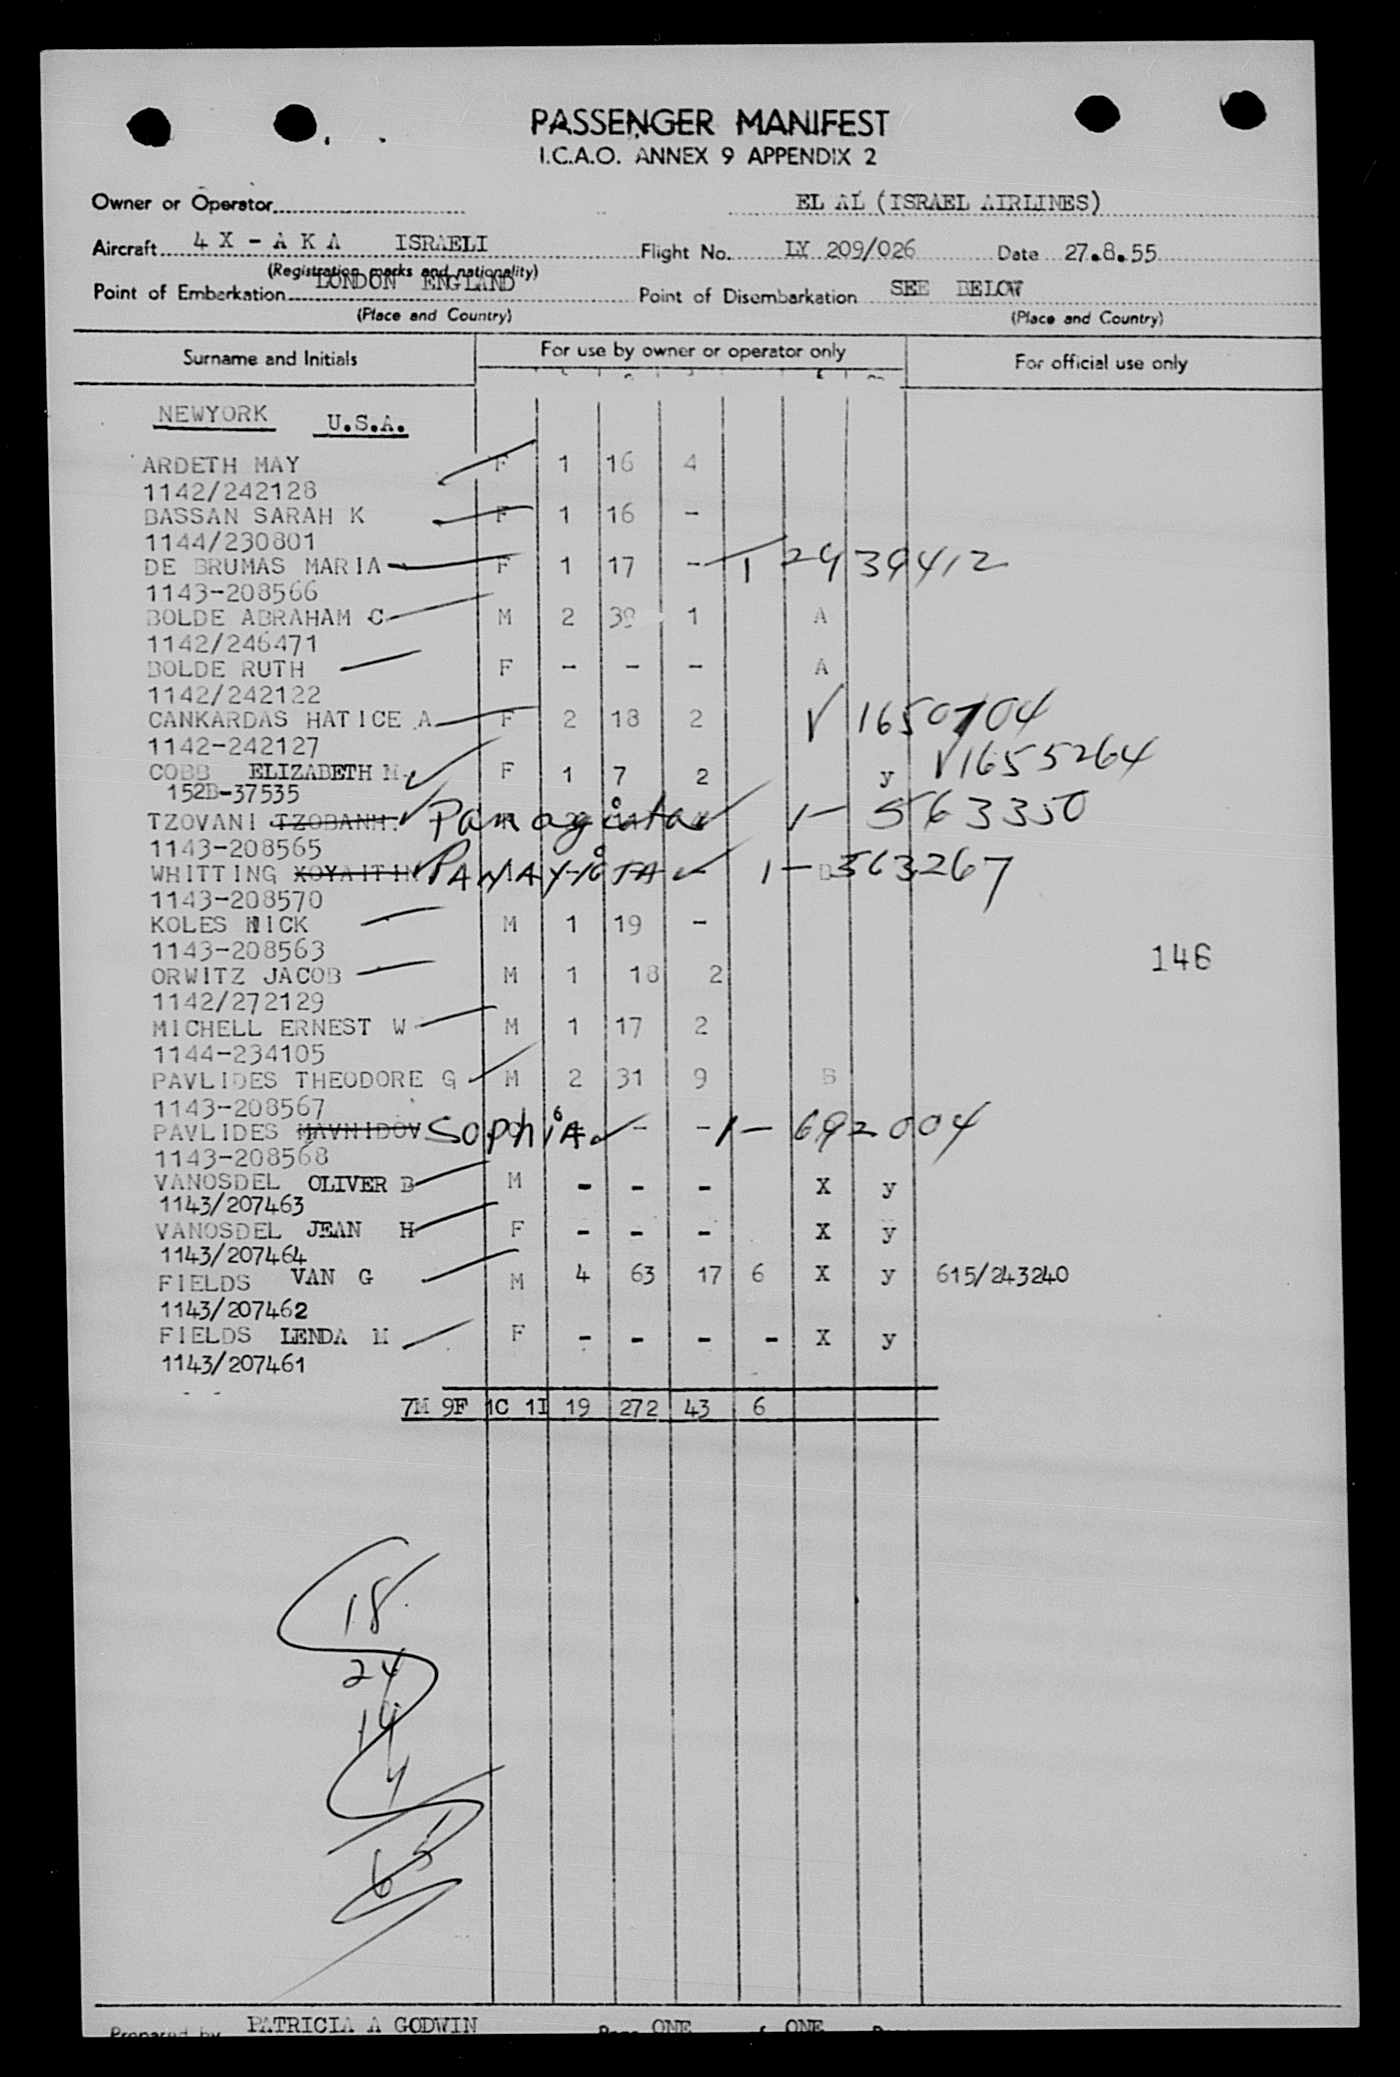 PASSENGER MANIFEST
I.C.A.O. ANNEX 9 APPENDIX 2
Owner or Operator EL AL (ISRAEL AIRLINES)
Aircraft 4 X - A K A ISRAELI Flight No. LY 209/026 Date 27.8.55
(Registration marks and nationality)
Point of Embarkation LONDON ENGLAND Point of Disembarkation SEE BELOW
(Place and Country) (Place and Country)
Surname and Initials For use by owner or operator only For official use only
NEWYORK U.S.A.
ARDETH MAY F 1 16 4
1142/242128
BASSAN SARAH K F 1 16 -
1144/230801
DE BRUMAS MARIA F 1 17 - T 2939412
1143-208566
BOLDE ABRAHAM C M 2 39 1 A
1142/246471
BOLDE RUTH F - - - A
1142/242122
CANKARDAS HATICE A F 2 18 2 V 1650704
1142-242127
COBB ELIZABETH M F 1 7 2 y V1655264
152B-37535
TZOVANI TZOBANH. Panagiota 1- 563350
1143-208565
WHITTING XOYAITIN PANAYIOTA 1- 563267
1143-208570
KOLES NICK M 1 19 -
1143-208563
146
ORWITZ JACOB M 1 18 2
1142/272129
MICHELL ERNEST W M 1 17 2
1144-234105
PAVLIDES THEODORE G M 2 31 9 B
1143-208567
PAVLIDES MAVNIDOV SophiA - - 1- 692004
1143-208568
VANOSDEL OLIVER B M - - - X y
1143/207463
VANOSDEL JEAN H F - - - X y
1143/207464
FIELDS VAN G M 4 63 17 6 X y 615/243240
1143/207462
FIELDS LENDA M F - - - - X y
1143/207461
7M 9F 1C 1I 19 272 43 6
18
24
19
4
65
Prepared by PATRICIA A GODWIN Page ONE of ONE